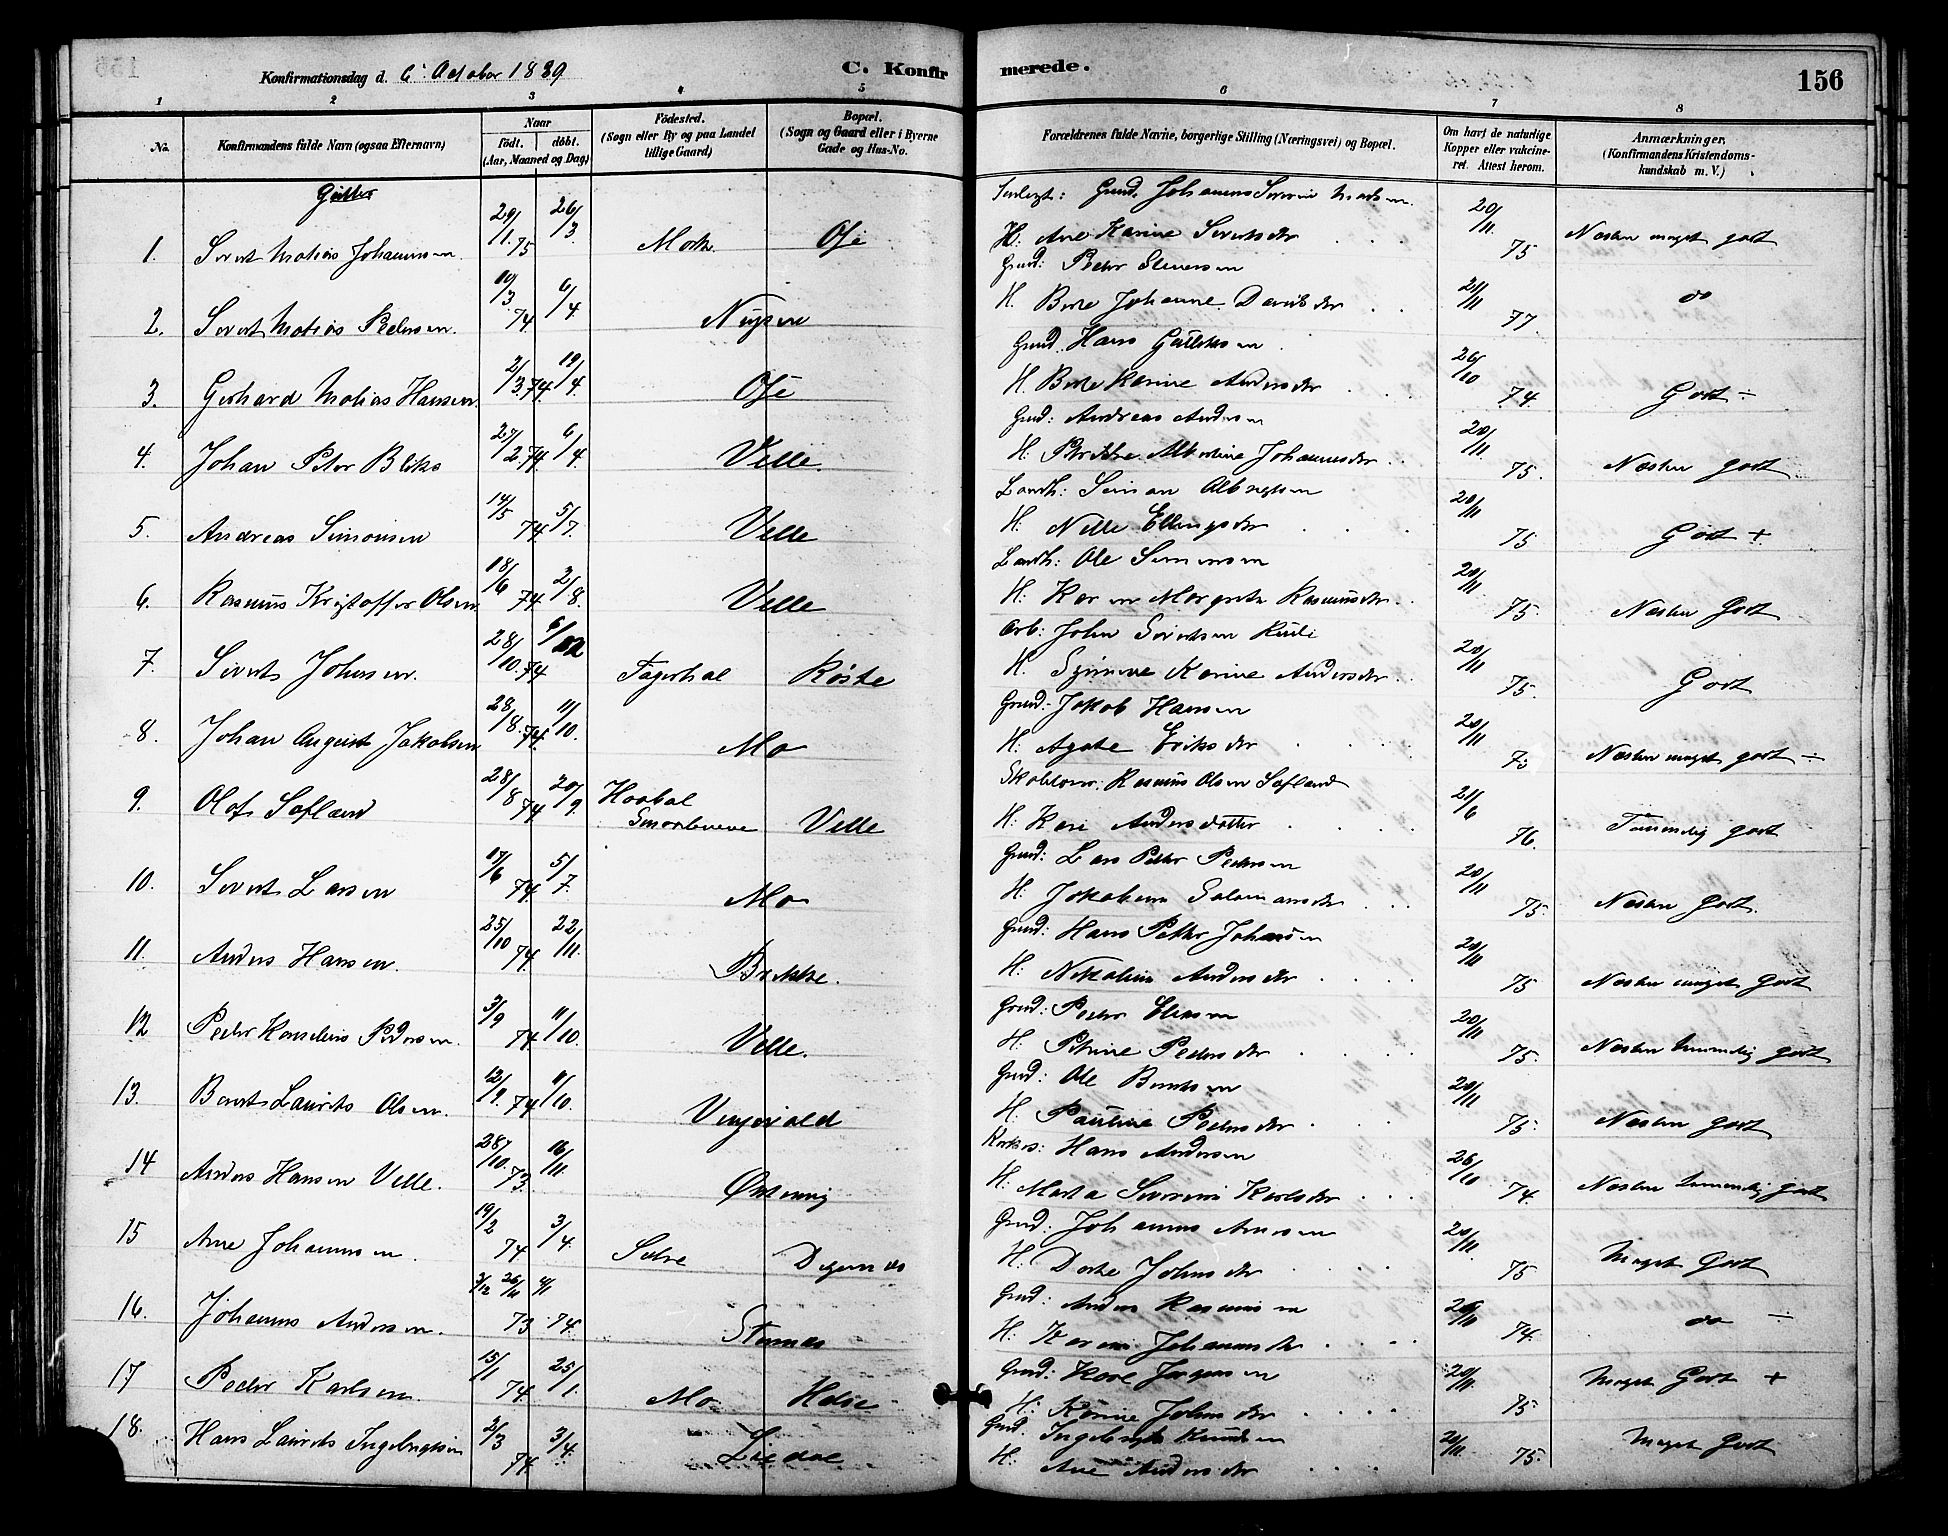 Konfirmationsdag d. 6' October 1889
C. Konfirmerede.
156
1 2 3 4 5 6 7 8
No.
Konfirmandens fulde Navn (ogsaa Efternavn)
Naar
født. døbt.
(Aar, Maaned og Dag)
Fødested.
(Sogn eller By og paa Landet tillige Gaard)
Bopæl.
(Sogn og Gaard eller i Byerne Gade og Hus-No.
Forældrenes fulde Navne, borgerlige Stilling (Næringsvei) og Bopæl.
Om havt de naturlige Kopper eller vaccineret. Attest herom.
Anmærkninger,
(Konfirmandens Kristendomskundskab m. V.)
Gutter
1. Sivert Matias Johannssen 29/1. 75 26/3. Mork Ose Johannes Severin Madsen H: Ane Karine Sivertsdtr 20/11. 75 Næsten meget godt
2. Sivert Matias Pedersen 10/3 74 6/4 Nupen Grd: Peder Stenersen H. Berte Johanne Davidsdtr 21/11 77. do
3. Gerhard Matias Hansen 2/3 74 19/4. Ose Grd. Hans Gulliksen H. Berte Karine Andersdtr 26/10 74. Godt ÷
4. Johan Peter Bliks 27/2. 74 6/4. Velle Grd: Andreas Andersen H. Albertine Johannesdtr 20/11. 75. Næsten godt
5. Andreas Simonsen 14/5 74 5/7. Velle Landh: Simon Albregtsen H. Nille Ellingsdtr 20/11 75 Godt +
6. Rasmus Kristoffer Olsen 18/6 74 2/8. Velle Landh: Ole Simonsen H. Karen Margrete Rasmusdtr 20/11 75. Næsten Godt
7. Sivert Johnsen. 28/10. 74 6/12 Fagerhol Røste Arb: John Sivertsen H. Karine Andersdtr 20/11 75. Godt
8. Johan August Jakobsen 28/8. 74. 11/10. Mo Grd: Jakob Hansen H. Agate Eriksdtr 20/11 75 Næsten meget godt ÷
9. Olof Sefland 28/8 74 20/9. Velle Skolelærer: Rasmus Olsen Sefland H: Kari Andersdatter 21/6 76. Temmelig godt
10. Sivert Larsen 17/6 74 5/7. Mo Grd: Lars Petter Pedersen H: Jokobine Salamansdtr 20/11 75. Næsten Godt.
11. Anders Hansen. 25/10 74. 22/11. Brekke. Grd: Hans Petter Johansen H: Nikoline Andersdtr 20/11 75 Næsten meget Godt
12 Peder Kornelius Pedersen. 3/9 74 11/10. Velle. Grd: Peder Eliasen H: Petrine Pedersdtr 20/11 75. Næsten temmelig godt
13. Bernt Laurits Olsen. 12/9. 74 11/10. Vengevold Grd: Ole Berntsen H. Pauline Pedersdtr 20/11 75. Næsten godt
14 Anders Hansen Velle. 28/10. 73. 16/11. Østening Hans Andersen H: Marta Severine Karlsdtr 26/10 74. Næsten temmelig godt
15 Arne Johannssen. 19/2 74 3/4. Sætre Digernes Grd: Johannes Arnesen H: Dorte Johnsdtr 20/11. 75 Meget Godt
16. Johannes Andersen. 3/12 73 4/1 74. Stennes Grd: Anders Rasmussen H: Karen Johannesdtr 26/10 74. do ÷
17 Peder Karlsen. 15/1 74. 25/1. Mo Grd: Kare Jørgensen H: Karine Johnsdtr 20/11. 75. Meget Godt +
18. Hans Laurits Ingebrigtsen 2/3 74. 3/4. Liedal Grd. Ingebrigt Knudsen H: Ane Andersdtr 20/11. 75. Meget Godt